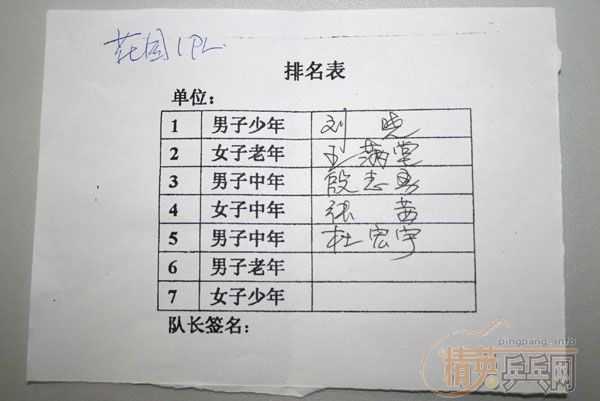 花园1PL
排名表
单位：
1 男子少年 刘 晓
2 女子老年 王满堂
3 男子中年 殷志勇
4 女子中年 张 茜
5 男子中年 杜宏宇
6 男子老年
7 女子少年
队长签名：
pingpang.info
精英乒乓网